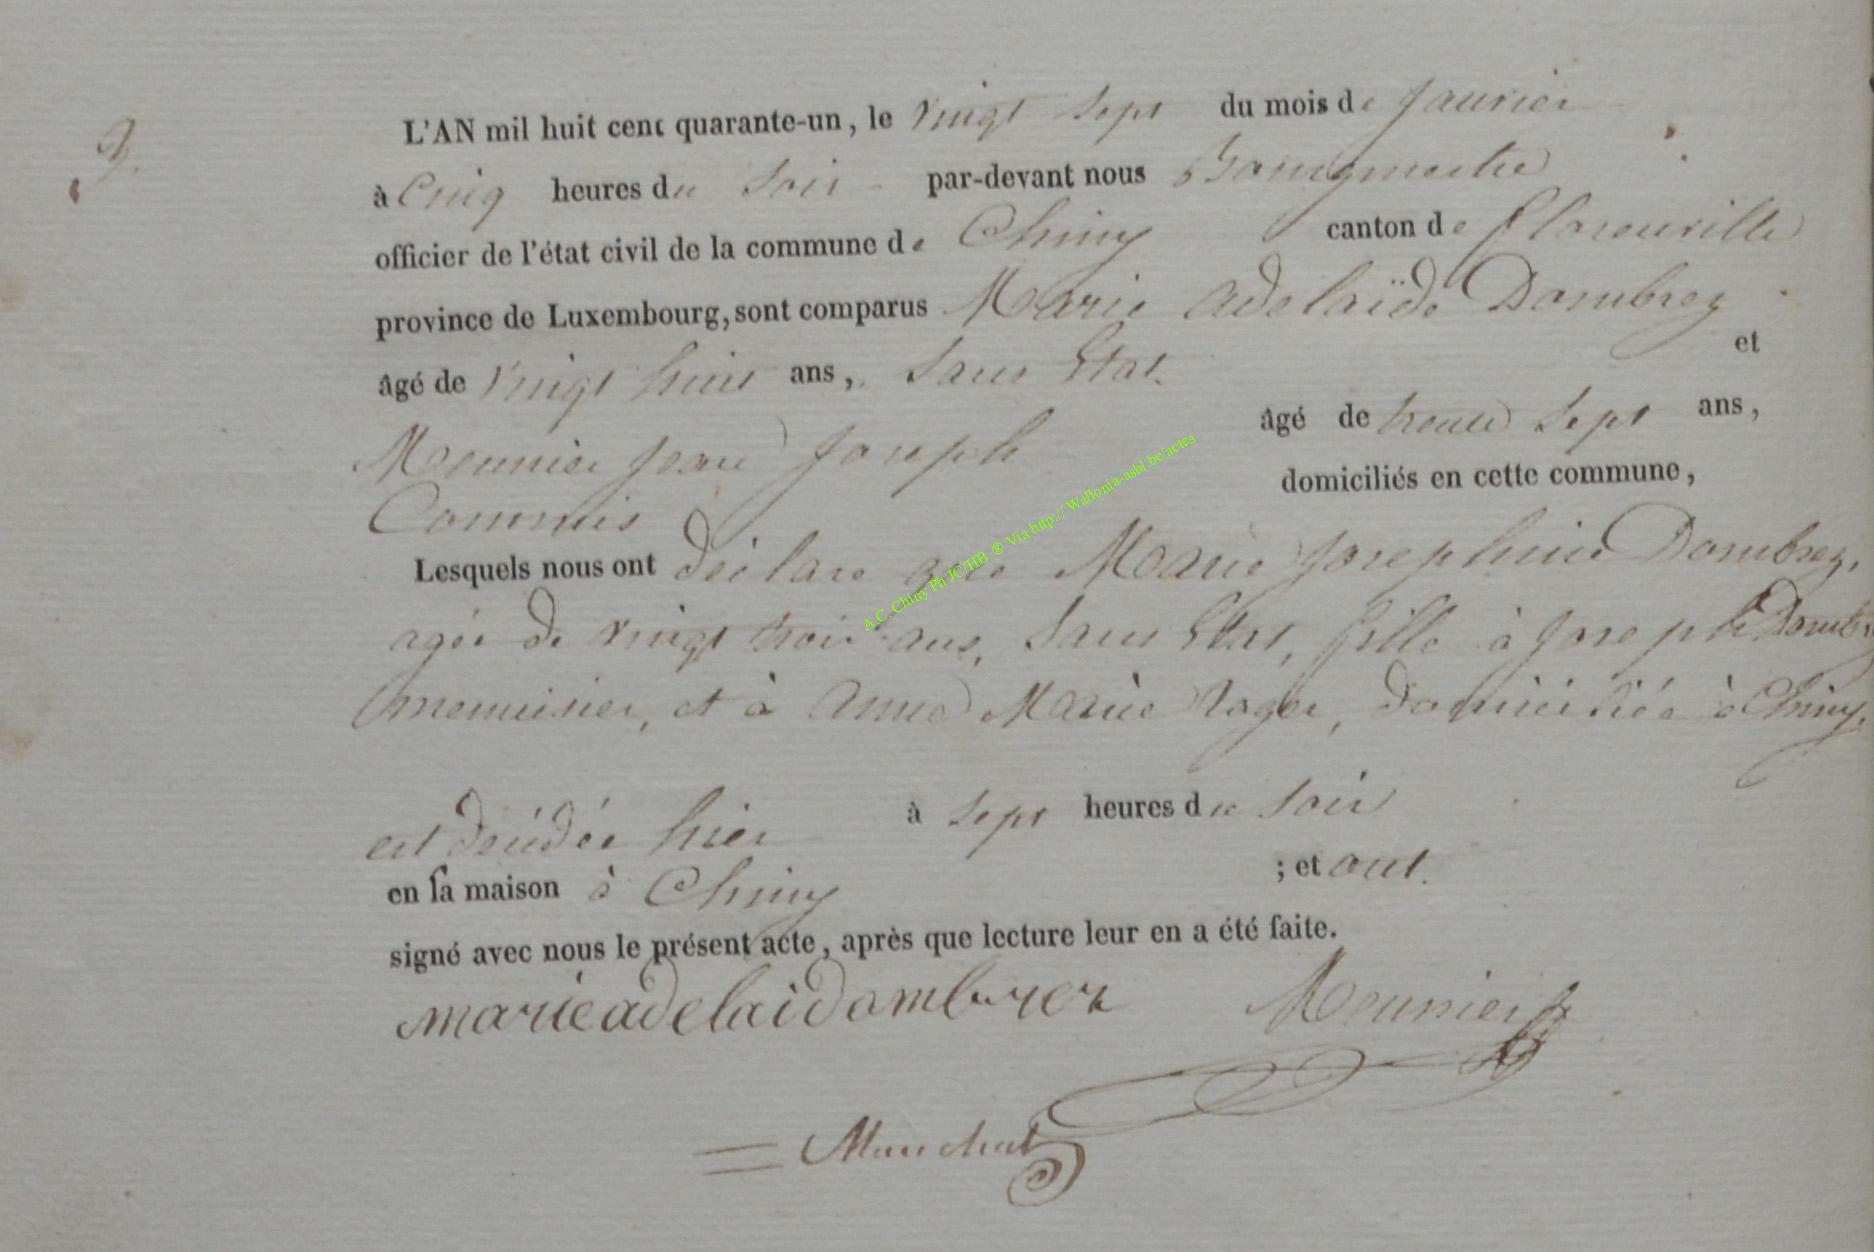 3.
L'AN mil huit cent quarante-un, le vingt sept du mois de janvier
à Cinq heures du Soir par-devant nous Bourgmestre
officier de l'état civil de la commune de Chiny canton de florenville
province de Luxembourg, sont comparus Marie adelaïde Dombrez
âgé de vingt huit ans, Sans Etat. et
Meunier jean joseph âgé de trente Sept ans,
Commis domiciliés en cette commune,
Lesquels nous ont déclaré que Marie josephine Dombrez,
agée de vingt trois ans, Sans Etat, fille à joseph Dombrez
menuisier, et à anne Marie Roger, domiciliée à Chiny,
est décédée hier à Sept heures du Soir
en sa maison à Chiny ; et ont
signé avec nous le présent acte, après que lecture leur en a été faite.
marie adelaidombrez Meunier
A.C. Chiny Ph JC/HB ® Via http:// Wallonia-asbl.be/actes